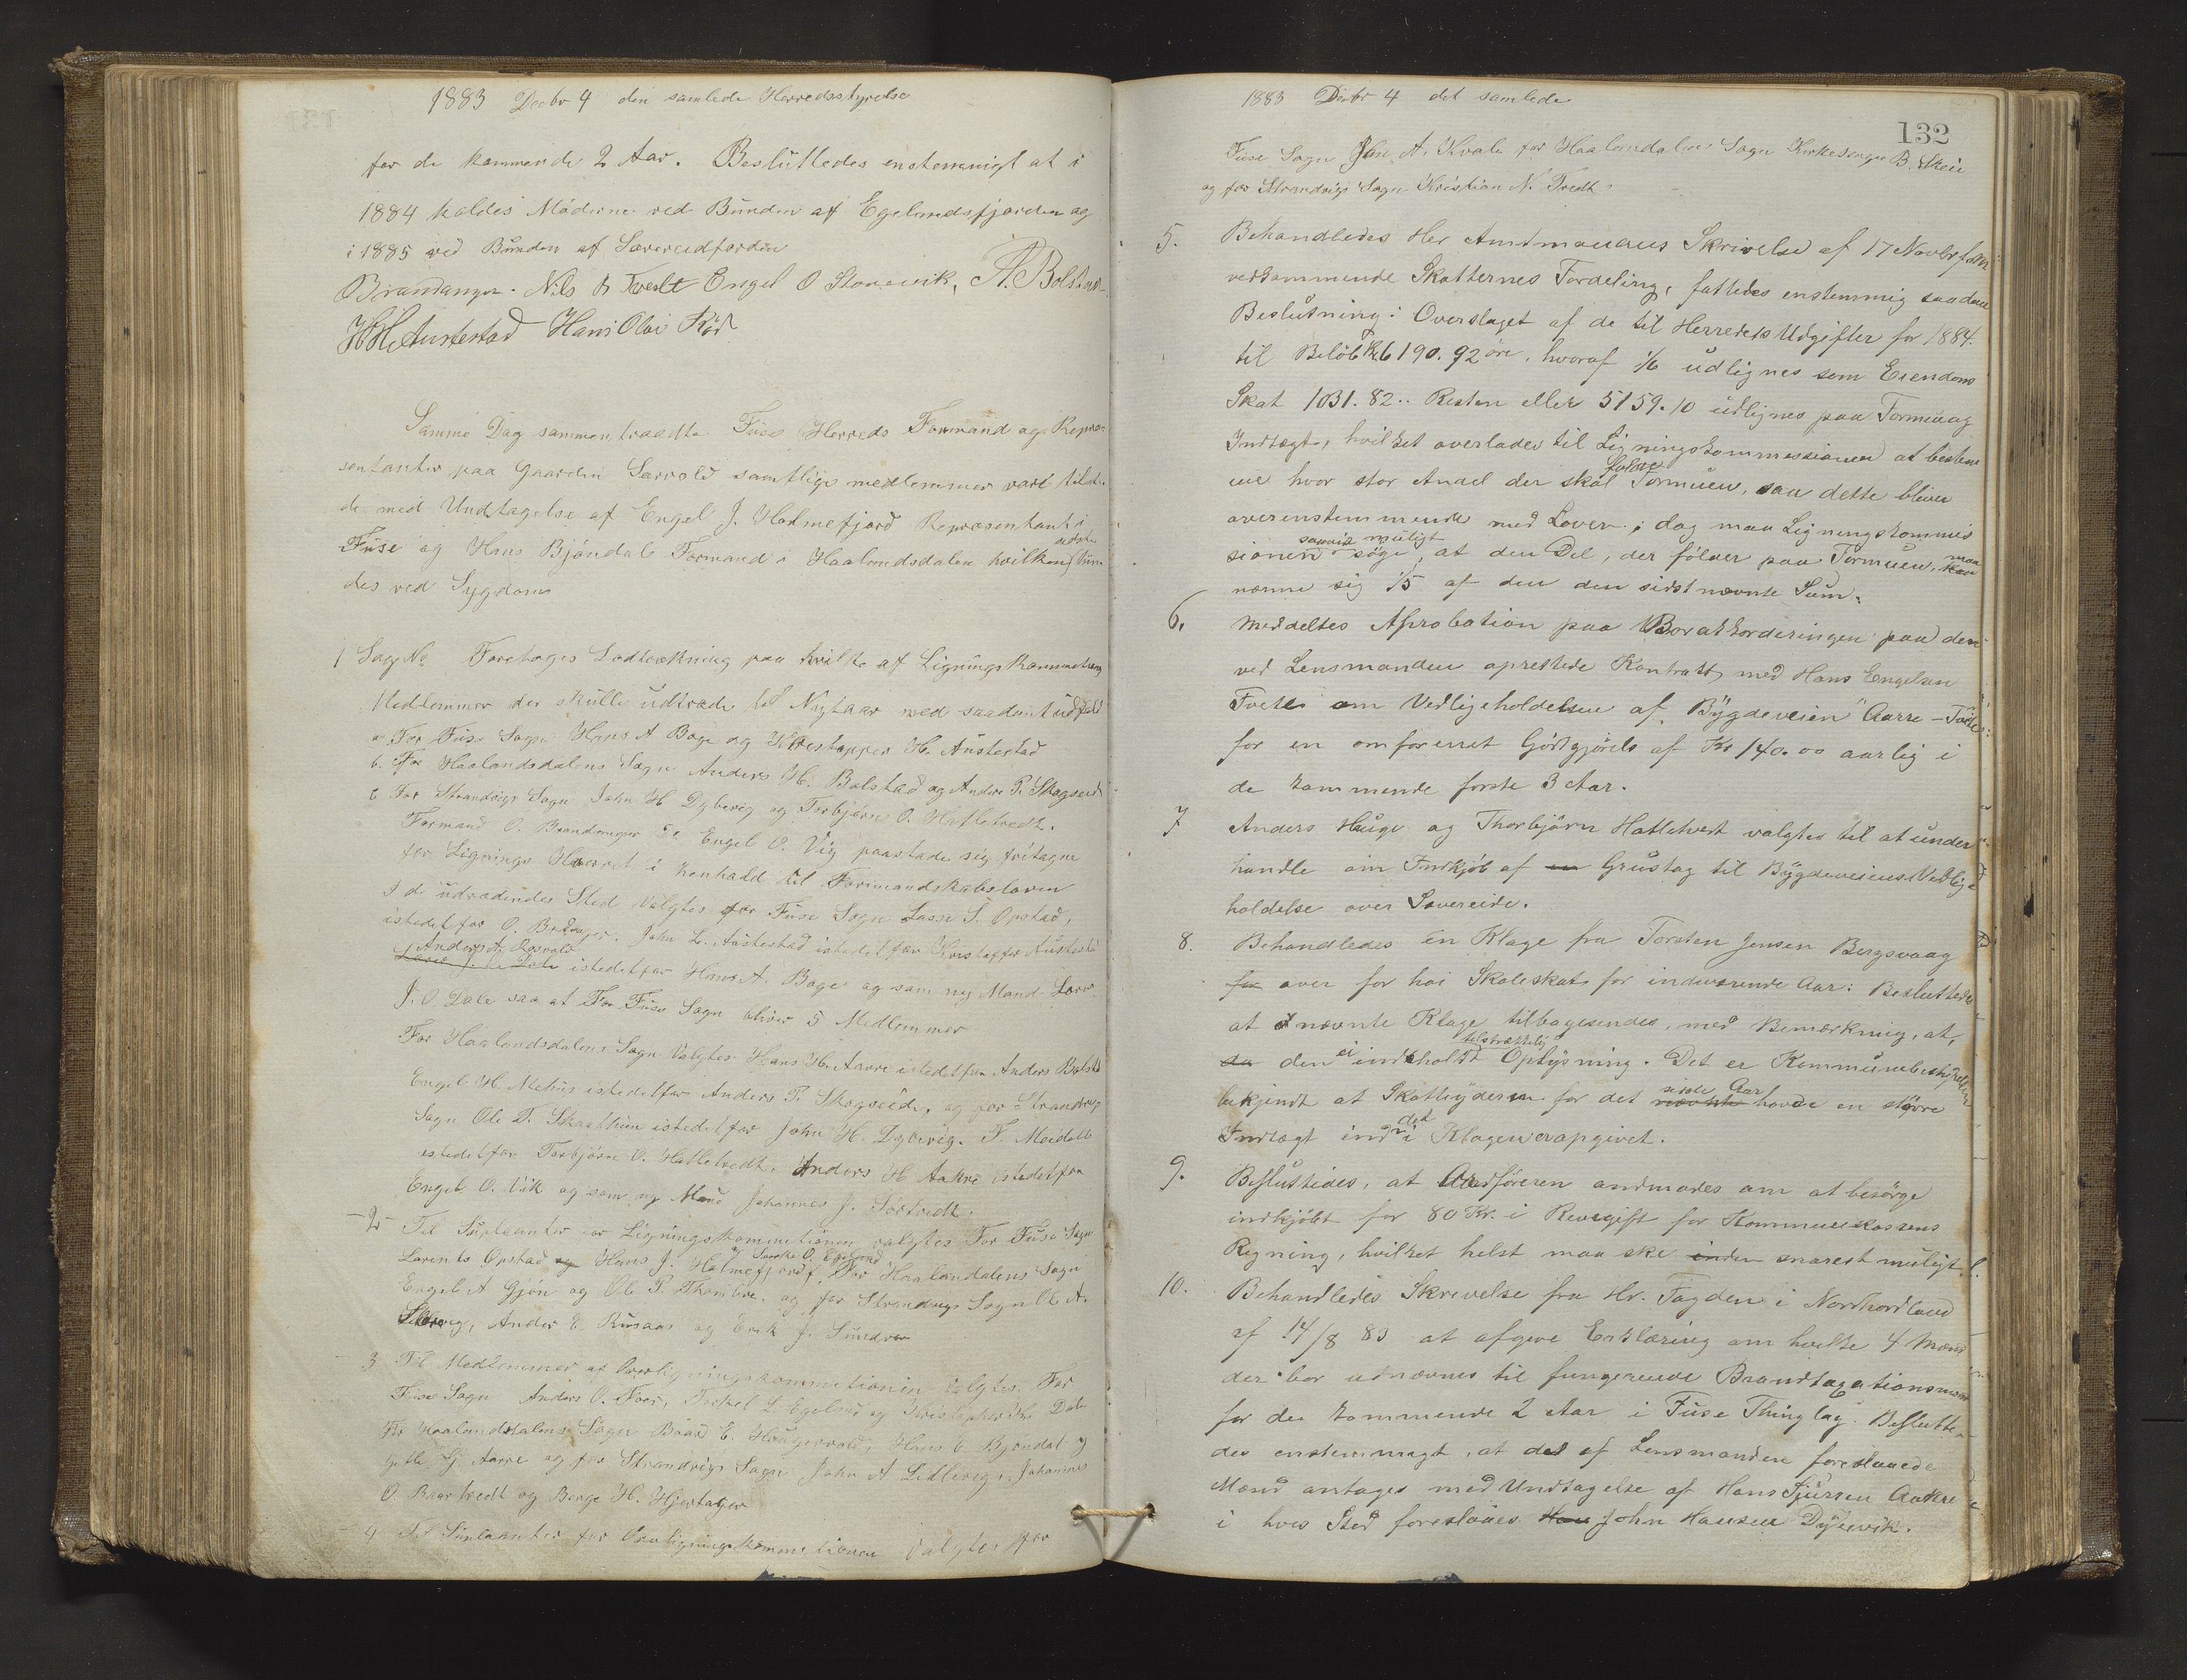 1883 Decbr 4 den samlede Herredsstyrelse
for de kommende 2 Aar. Besluttedes enstemmigt at i
1884 holdes Möderne ved Bunden af Egelandsfjorden og
i 1885 ved Bunden af Sævereidfjorden
Brandanger. Nils B Tvedt Engel O Storevik, A. Bolstad
H H Austestad Hans Olai Röd
Samme Dag sammentraadte Fuse Herreds Formænd og Repræ-
sentanter paa Gaarden Sævold samtlige medlemmer vare tilste-
de med Undtagelse af Engel J. Holmefjord Repræsentant i
Fuse og Hans Bjöndal Formand i Haalandsdalen hvilken sidste
des ved Sygdom
1 Sag No Foretoges Lodtrækning paa hvilke af Ligningskommitionens
Medlemmer der skulle udtræde til Nytaar med saadant udfald
a For Fuse Sogn Hans A Bage og Kristopper H. Austestad
b. For Haalandsdalens Sogn Anders H. Bolstad og Anders P. Skogseid
c For Strandvigs Sogn John H Dybevig og Torbjörn O. Hatletvedt.
Formand O. Brandanger og Engel O. Vig paastode sig fritagne
for Lignings Hvervet i henhold til Formandskabsloven
I de udtrædendes Sted Valgtes for Fuse Sogn Lasse S. Opstad,
istedetfor O. Brdanger. John L. Austestad istedetfor Kristoffer Austestad
Anders A. Rosvold
istedetfor Hans A. Bage og som ny Mand Lars
J. O Dale saa at For Fuse Sogn bliver 5 Medlemmer
For Haalandsdalens Sogn Valgtes Hans H. Aarre istedetfor Anders Bolstad
Engel H. Mehus istedetfor Anders P. Skogseide, og for Strandvigs
Sogn Ole T. Skaathun istedetfor John H. Dybevig. T. Meidell
istedetfor Torbjörn O. Hatletvedt. Anders H Aakre istedetfor
Engel O. Vik og som ny Mand Johannes J. Sörtvedt.
-2- Til Suplianter for Ligningskommitionen valgtes For Fuse Sogn
Lorents Opstad og Hans J. Holmefjord, For Haalandalens Sogn
Engel A Gjön og Ole P. Tkambre. og for Strandvigs Sogn Ole A.
Anders E. Rusaas og Erik J. Sundvor
3 Til Medlemmer af Overligningskommitionen Valgtes For
Fuse Sogn Anders O. Foer, Torkel L Egeland og Kristopher Dale
For Haalandsdalens Sogn Baard E. Haugervold, Hans E Bjöndal og
Gitle G. Aarre og for Strandvigs Sogn John A Litlevig. Johannes
O. Baartvedt og Berge H. Hjertager
4 Til Suplianter for Overligningskommitionen Valgtes for
1883 Decbr 4 det samlede
132
Fuse Sogn John A. Kvale for Haalandalens Sogn Kirkesanger B. Skeie
og for Strandvigs Sogn Kristian N. Tvedt.
5. Behandledes Her Amtmanens Skrivelse af 17 Novbr f.
vedkommende Skatternes Fordeling, fattedes enstemmig saadan
Beslutning: Overslaget af de til Herredets Udgifter for 1884.
til Belöb Kr. 6190.92 öre, hvoraf 1/6 udlignes som Eiendoms
Skat 1031.82.. Resten eller 5159.10 udlignes paa Formue og
Indtægt, hvilket overlades til Ligningskommissionen at bestem
me hvor stor Andel der skal falde Formuen, saa dette bliver
overenstemmende med Loven; dog maa Ligningskommis
sionen saavidt muligt söge, at den Del, der földer paa Formuen, maa
nærme sig 1/5 af den den sidstnævnte Sum.
6. Meddeltes Aprobation paa Borakkorderingen paa den
ved Lensmanden oprettede Kontrakt med Hans Engelsen
Tveite om Vedligeholdelsen af Bygdeveien Aarre-Tveite
for en omforenet Godtgjörels af Kr 140.00 aarlig i
de kommende forste 3 Aar.
7 Anders Hauge og Thorbjörn Hatletvedt valgtes til at under
handle om Indkjöb af en Grustag til Bygdeveiens Vedlige
holdelse over Sævereide.
8. Behandledes En Klage fra Torsten Jensen Bergsvaag
for over for hoi Skoleskat for indeværende Aar: Besluttedes
at nævnte Klage tilbagesendes, med Bemærkning, at,
da den ei indeholdt tilstrækkelig Oplysning. Det er Kommunebestyrelsen
bekjendt at Skatteyderen for det sidste Aar havde en större
Indtægt ind det i Klagen er opgivet.
9. Besluttedes, at Ordföreren anmodes om at besörge
indkjöbt for 80 Kr. i Revegift for Kommunekassens
Regning, hvilket helst maa ske inden snarest muligt.
10. Behandledes Skrivelse fra Hr. Fogden i Nordhordland
af 14/8 83 at afgive Erklæring om hvilke 4 Mænd
der bör udnævnes til fungerende Brandtaxationsmænd
for de kommende 2 Aar i Fuse Thinglag. Beslutte-
des enstemmigt, at det af Lensmanden foreslaaede
Mænd antages med Undtagelse af Hans Sjursen Aakre
i hvis Sted foreslaaes Han John Hansen Dysevik.